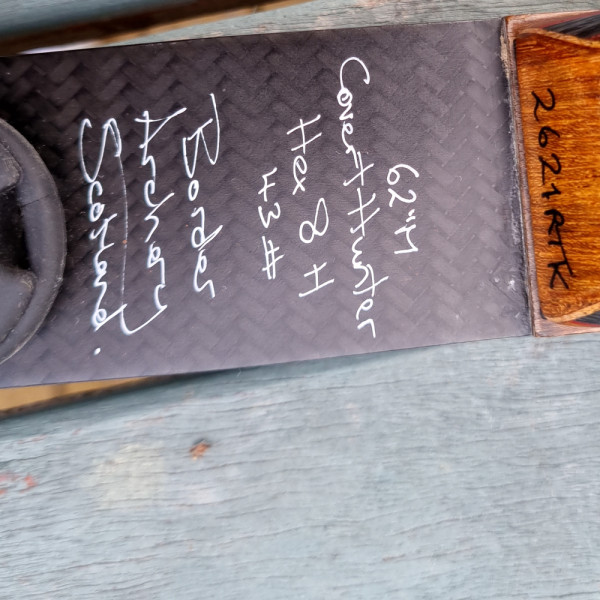 62"M
Covert Hunter
Hex 8 H
43#
Border
Archery
Scotland.
2621RTK